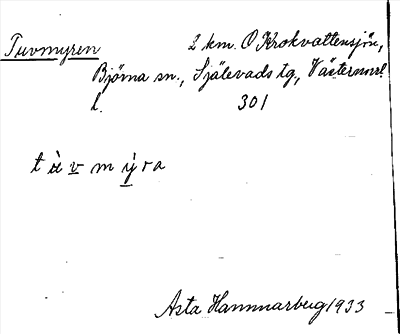 Tuvmyren 2 km. O Krokvattensjön,
Björna sn., Själevads tg, Västernorrl.
l. 301
t ù v m ỳ r a
Asta Hammarberg 1933